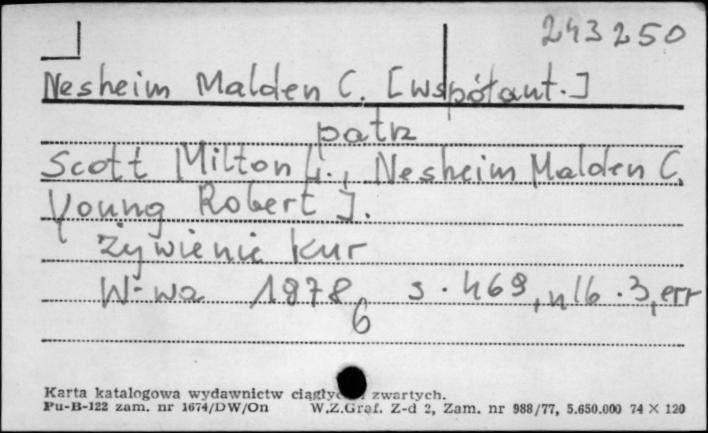 243250
Nesheim Malden C. [współaut.]
patrz
Scott Milton L., Nesheim Malden C.
Young Robert J.
Żywienie kur
W-wa 1978 s. 469, nlb. 3, err
6
Karta katalogowa wydawnictw ciągłyc zwartych.
Pu-B-122 zam. nr 1674/DW/On W.Z.Graf. Z-d 2, Zam. nr 988/77, 5.650.000 74 × 120